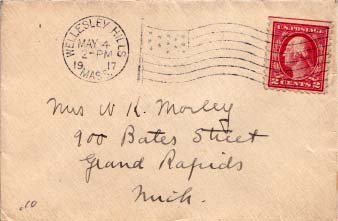 WELLESLEY HILLS
MAY 4
2-PM
1917
MASS.
U.S. POSTAGE
2 CENTS 2
Mrs W. K. Morley
900 Bates Street
Grand Rapids
Mich.
.10